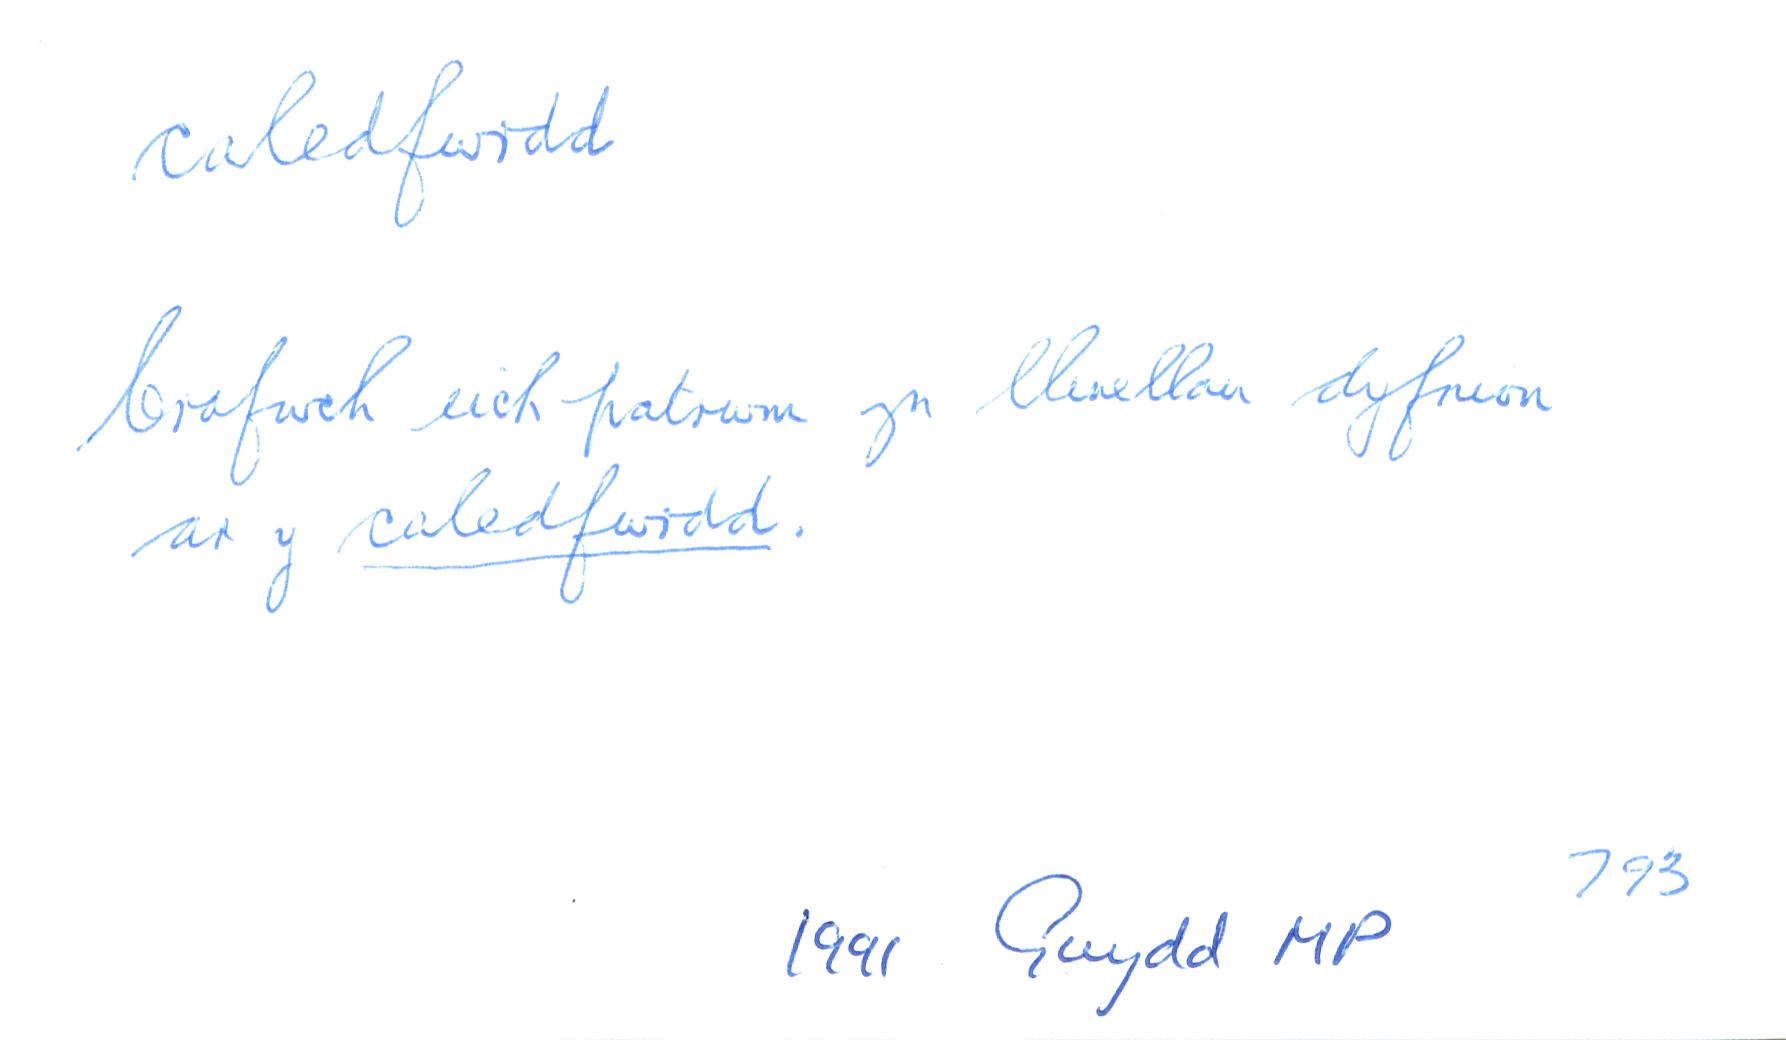 caledfwrdd
Crafwch eich patrwm yn llinellau dyfnion
ar y caledfwrdd.
793
1991 Gwydd MP